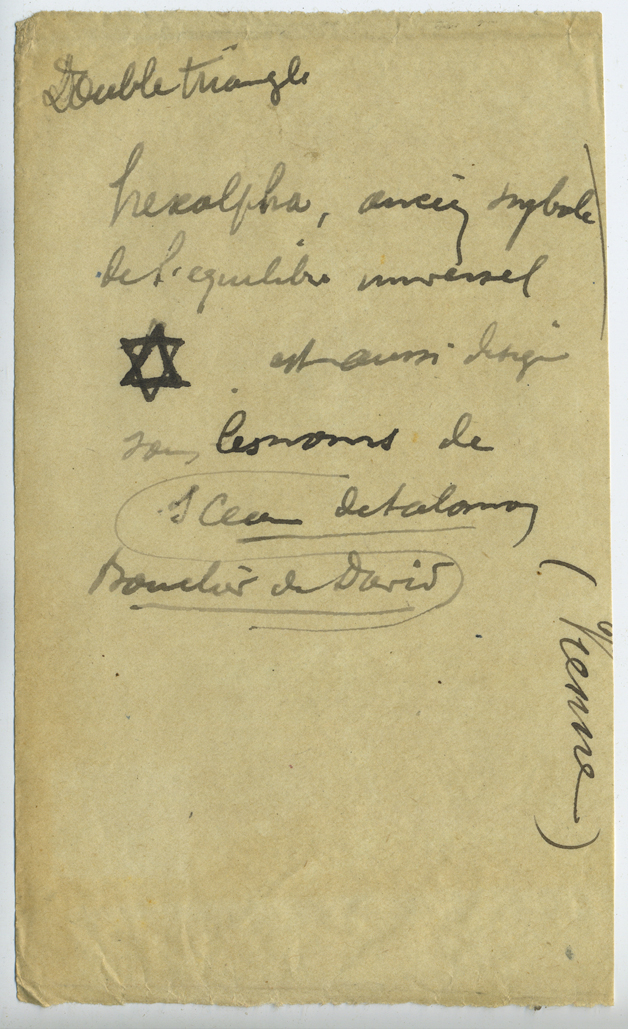 Double triangle
hexalpha, ancien symbole
de l'equilibre universel
est aussi désigné
sous les noms de
Sceau de Salomon
Bouclier de David